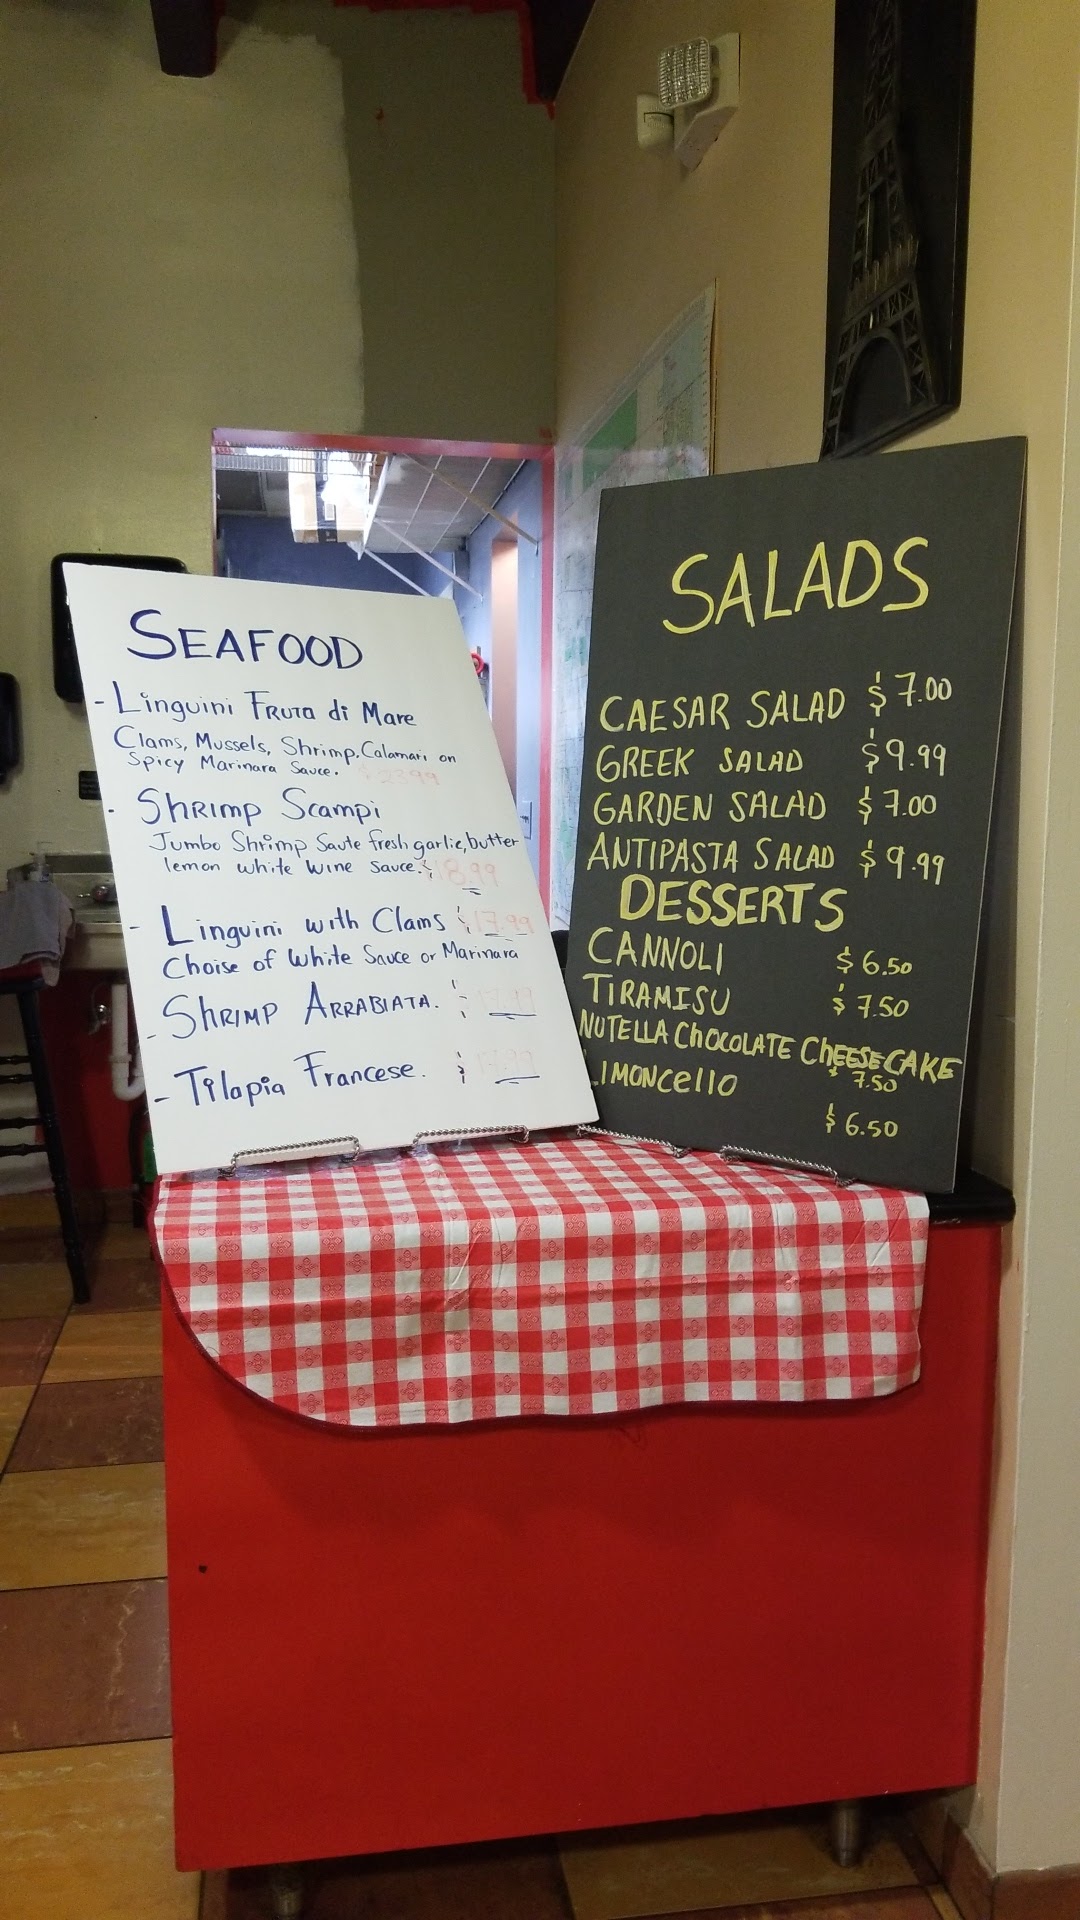 SEAFOOD
- Linguini FRUTA di Mare
Clams, Mussels, Shrimp, Calamari on
Spicy Marinara Sauce. $23.99
- SHRIMP SCAMPI
Jumbo Shrimp Saute fresh garlic, butter
lemon white wine sauce. $18.99
- Linguini with Clams $17.99
Choise of White Sauce or Marinara
- SHRIMP ARRABIATA. $17.99
- Tilapia Francese. $17.99
SALADS
CAESAR SALAD $7.00
GREEK SALAD $9.99
GARDEN SALAD $7.00
ANTIPASTA SALAD $9.99
DESSERTS
CANNOLI $6.50
TIRAMISU $7.50
NUTELLA CHOCOLATE CHEESECAKE
$7.50
LIMONCELLO
$6.50